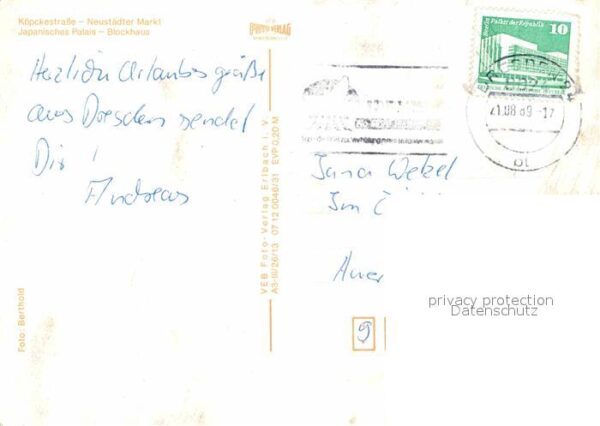 Köpckestraße – Neustädter Markt
Japanisches Palais – Blockhaus
FOTO-VERLAG
Herzliche Urlaubsgrüße
aus Dresden sendet
Dir !
Andreas
Foto: Berthold
VEB Foto-Verlag Erlbach i. V.
A3-III/26/13 07 12 0046/31 EVP 0,20 M
Berlin, Palast der Republik
10
21.08.89-17
bt
Jana Wetzel
Im
Auer
9
privacy protection
Datenschutz